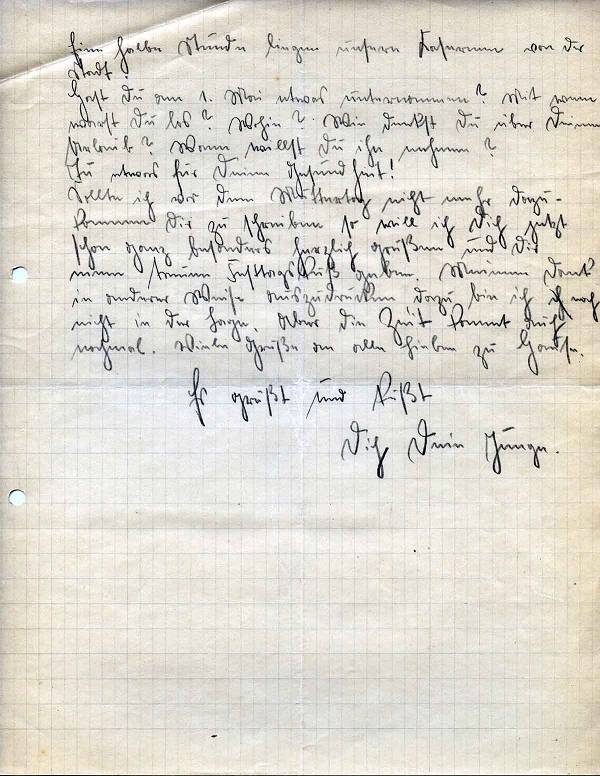 Eine halbe Stunde liegen unsere Kasernen von der
Stadt.
Hast Du am 1. Mai etwas unternommen? Mit wem
warst Du los? Wohin? Wie denkst Du über Deinen
Urlaub? Wann willst Du ihn nehmen?
Tu etwas für Deine Gesundheit!
Sollte ich vor dem Muttertag nicht mehr dazu-
kommen Dir zu schreiben so will ich Dich jetzt
schon ganz besonders herzlich grüßen und Dir
einen Festtagskuß geben. Meinen Dank
in anderer Weise auszudrücken dazu bin ich noch
nicht in der Lage. Aber die Zeit kommt auch
nochmal. Viele Grüße an alle Lieben zu Hause.
Es grüßt und küßt
Dich Dein Junge.